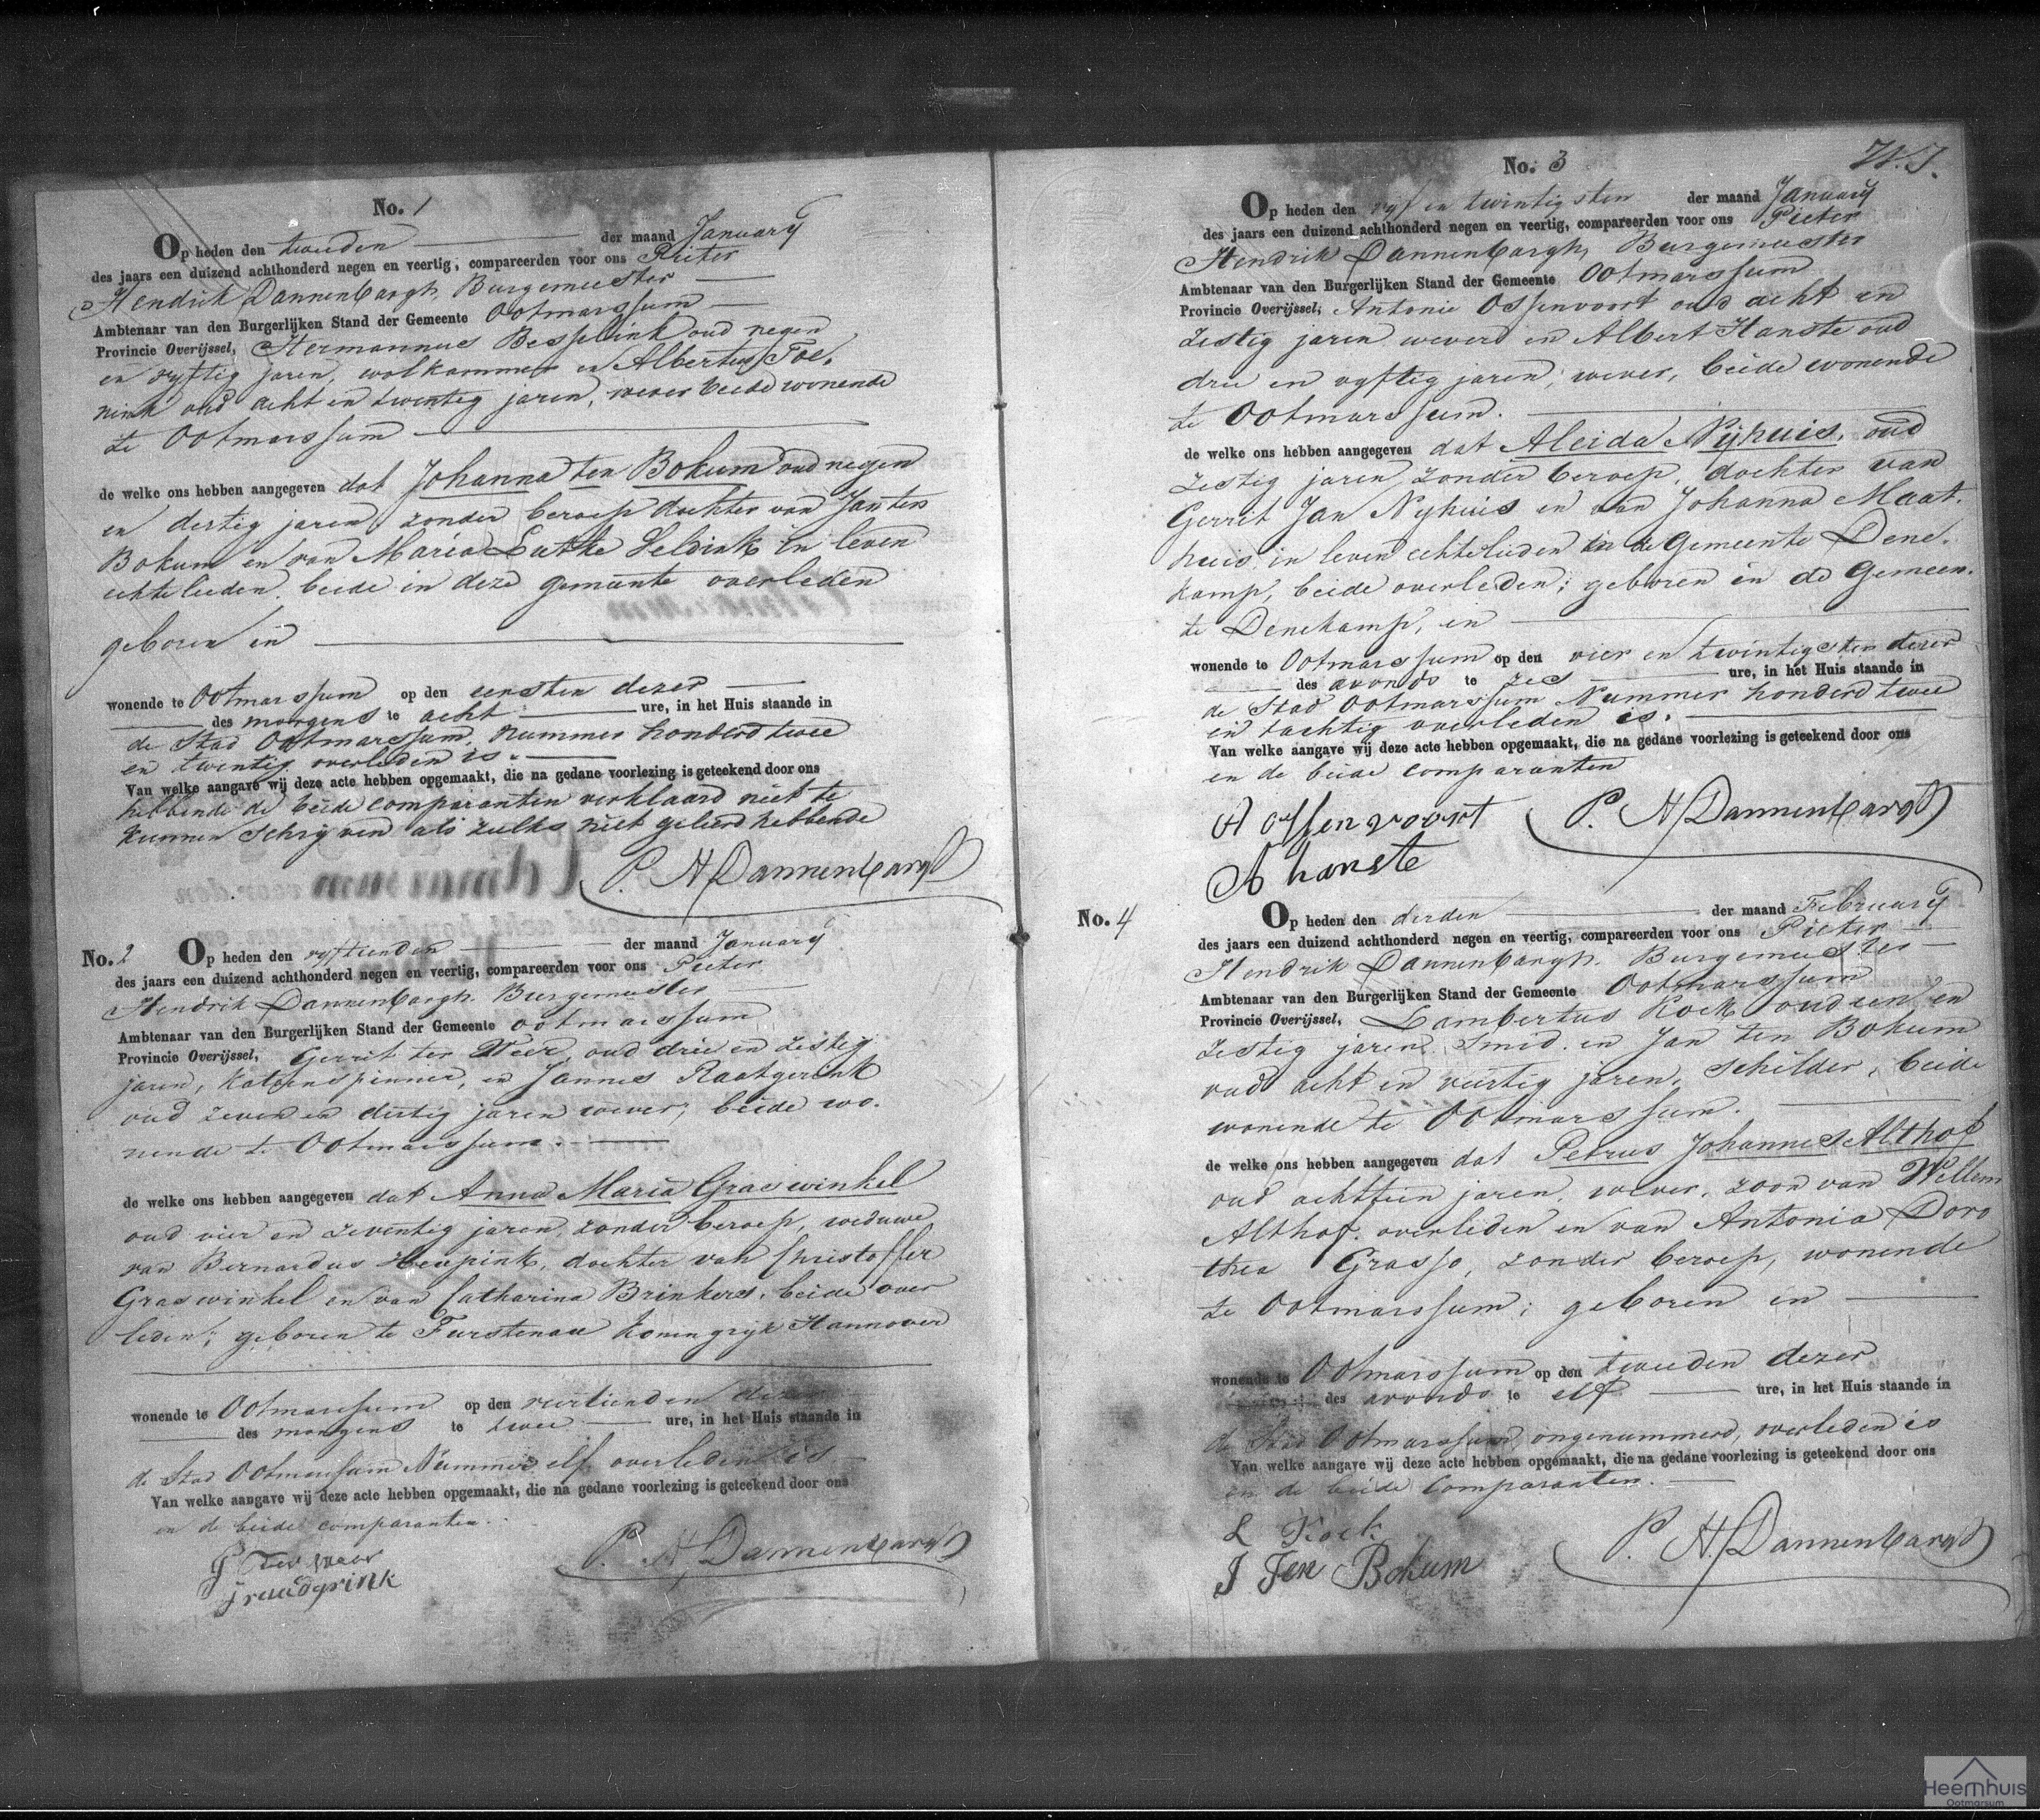 No. 1
Op heden den tweeden der maand January
des jaars een duizend achthonderd negen en veertig, compareerden voor ons Pieter
Hendrik Dannenbargh, Burgemeester
Ambtenaar van den Burgerlijken Stand der Gemeente Ootmarssum
Provincie Overijssel, Hermannus Besselink oud negen
en vyftig jaren, wolkammer en Albertus Toe-
nink oud acht en twintig jaren, wever beide wonende
te Ootmarssum
de welke ons hebben aangegeven dat Johanna ten Bokum oud negen
en dertig jaren, zonder beroep dochter van Jan ten
Bokum en van Maria Lutke Veldink in leven
echtelieden, beide in deze gemeente overleden
geboren in
wonende te Ootmarssum op den eersten dezer
des morgens te acht ure, in het Huis staande in
de Stad Ootmarssum, nummer honderd twee
en twentig overleden is.
Van welke aangave wij deze acte hebben opgemaakt, die na gedane voorlezing is geteekend door ons
hebbende de beide comparanten verklaard niet te
kunnen schryven als zulks niet geleerd hebbende
P. H. Dannenbargh
No. 2
Op heden den vyftienden der maand January
des jaars een duizend achthonderd negen en veertig, compareerden voor ons Pieter
Hendrik Dannenbargh. Burgemeester
Ambtenaar van den Burgerlijken Stand der Gemeente Ootmarssum
Provincie Overijssel, Gerrit ter Weer, oud drie en zestig
jaren, katoenespinner, en Jannes Raatgerink
oud zeven en dertig jaren wever, beide wo-
nende te Ootmarssum.
de welke ons hebben aangegeven dat Anna Maria Graswinkel
oud vier en zeventig jaren, zonder beroep, weduwe
van Bernardus Heupink, dochter van Christoffer
Graswinkel en van Catharina Brinkers, beide over
leden; geboren te Furstenau Koningryk Hannover
wonende te Ootmarssum op den veertienden dezer
des morgens te twee ure, in het Huis staande in
de Stad Ootmarssum Nummer elf overleden is
Van welke aangave wij deze acte hebben opgemaakt, die na gedane voorlezing is geteekend door ons
en de beide comparanten.
G Ter weer
J raadgrink
P. H. Dannenbargh
No. 3
Op heden den vyf en twintigsten der maand January
des jaars een duizend achthonderd negen en veertig, compareerden voor ons Pieter
Hendrik Dannenbargh, Burgemeester
Ambtenaar van den Burgerlijken Stand der Gemeente Ootmarssum
Provincie Overijssel, Antonie Ossenvoort oud acht en
zestig jaren wever en Albert Hanste oud
drie en vyftig jaren, wever, beide wonende
te Ootmarssum.
de welke ons hebben aangegeven dat Aleida Nyhuis, oud
zestig jaren zonder beroep, dochter van
Gerrit Jan Nyhuis en van Johanna Maat-
huis, in leven echtelieden in de Gemeente Dene-
kamp, beide overleden; geboren in de Gemeen-
te Denekamp, in
wonende te Ootmarssum op den vier en twintigsten dezer
des avonds te zes ure, in het Huis staande in
de Stad Ootmarssum Nummer honderd twee
en tachtig overleden is.
Van welke aangave wij deze acte hebben opgemaakt, die na gedane voorlezing is geteekend door ons
en de beide comparanten
A ossenvoort
A hanste
P. H. Dannenbargh
No. 4
Op heden den derden der maand February
des jaars een duizend achthonderd negen en veertig, compareerden voor ons Pieter
Hendrik Dannenbargh. Burgemeester
Ambtenaar van den Burgerlijken Stand der Gemeente Ootmarssum
Provincie Overijssel, Lambertus Kock oud een en
zestig jaren, Smid. en Jan ten Bokum
oud acht en veertig jaren, Schilder, beide
wonende te Ootmarssum.
de welke ons hebben aangegeven dat Petrus Johannes Althof
oud achttien jaren, wever, zoon van Willem
Althof, overleden en van Antonia Doro
thea Grasso, zonder beroep, wonende
te Ootmarssum; geboren en
wonende te Ootmarssum op den tweeden dezer
des avonds te elf ure, in het Huis staande in
de Stad Ootmarssum, ongenummerd, overleden is
Van welke aangave wij deze acte hebben opgemaakt, die na gedane voorlezing is geteekend door ons
en de beide Comparanten.
L Kock
J Ten Bokum
P. H. Dannenbargh
Heemhuis
Ootmarsum